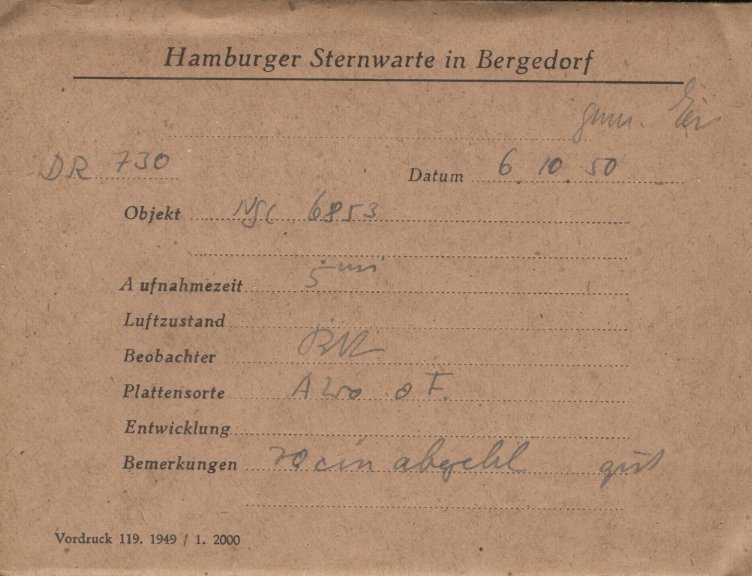 Hamburger Sternwarte in Bergedorf
DR 730 Datum 6. 10. 50
Objekt NGC 6853
Aufnahmezeit 5 min
Luftzustand
Beobachter
Plattensorte
Entwicklung
Bemerkungen 70 cm abgebl gut
Vordruck 119. 1949 / 1. 2000